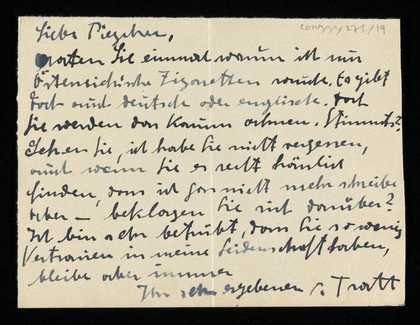 Liebe Piezchen,
raten Sie einmal warum ich nur
österreichische Zigaretten rauche. Es gibt
doch auch deutsche oder englische. Doch
Sie werden das kaum ahnen. Stimmts?
Sehen Sie, ich habe Sie nicht vergessen,
und wenn Sie es recht
finden, dass ich gar nicht mehr schreibe
aber — beklagen Sie sich darüber?
Ich bin sehr betrübt, dass Sie so wenig
Vertrauen in meine Leidenschaft haben,
bleibe aber immer
Ihr sehr ergebener